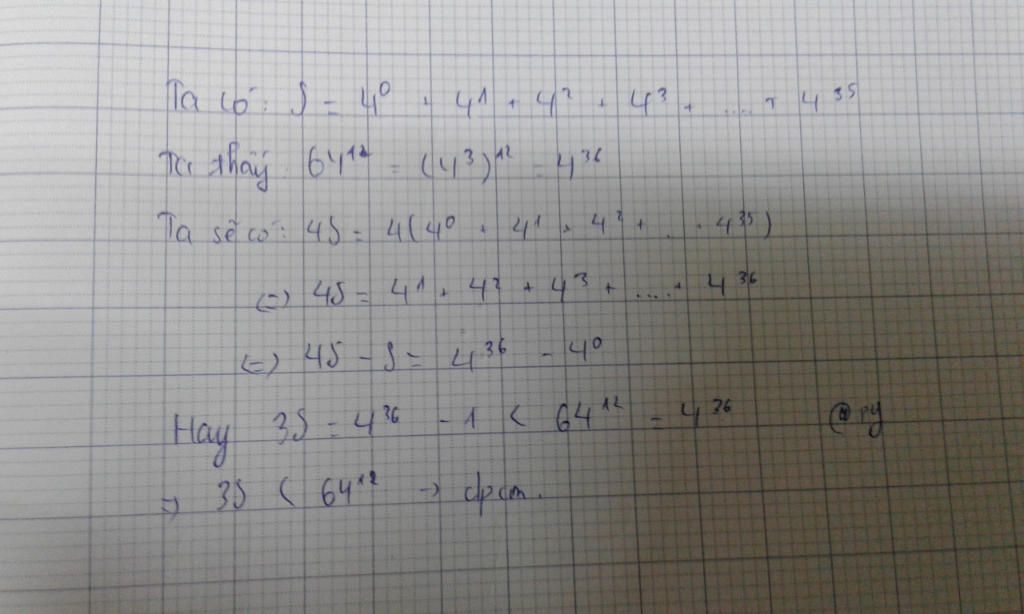 Ta có: S = 4⁰ + 4¹ + 4² + 4³ + .... + 4³⁵
Ta thấy 64¹² = (4³)¹² = 4³⁶
Ta sẽ có: 4S = 4(4⁰ + 4¹ + 4² + ... 4³⁵)
(=) 4S = 4¹ + 4² + 4³ + ....+ 4³⁶
(=) 4S - S = 4³⁶ - 4⁰
Hay 3S = 4³⁶ - 1 < 64¹² = 4³⁶ @py
=> 3S < 64¹² -> đpcm.